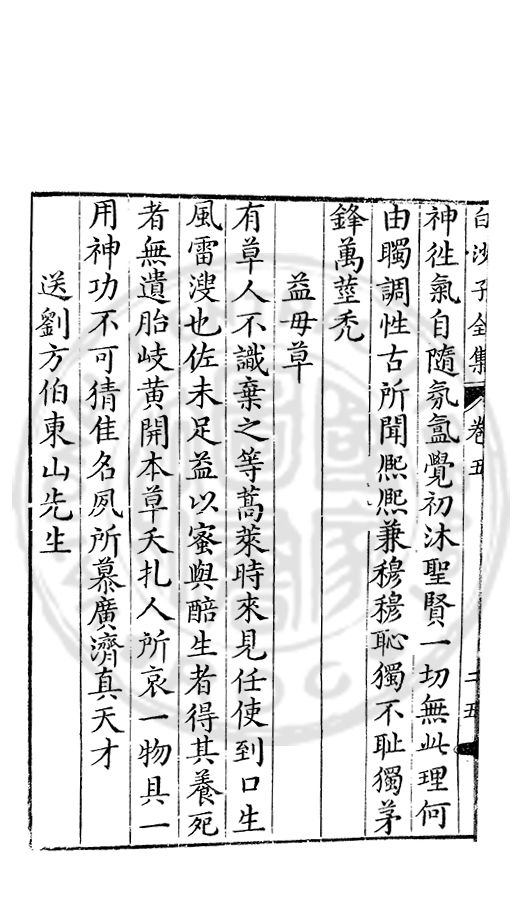 白沙子全集 卷五 二五
神徃氣自隨氛氳覺初沐聖賢一切無此理何
由矚調性古所聞熙熙兼穆穆恥獨不耻獨茅
鋒萬莖禿
益毋草
有草人不識棄之等蒿萊時來見任使到口生
風雷溲也佐未足益以蜜與醅生者得其養死
者無遺胎岐黄開本草夭扎人所哀一物具一
用神功不可猜隹名夙所慕廣濟真天才
送劉方伯東山先生